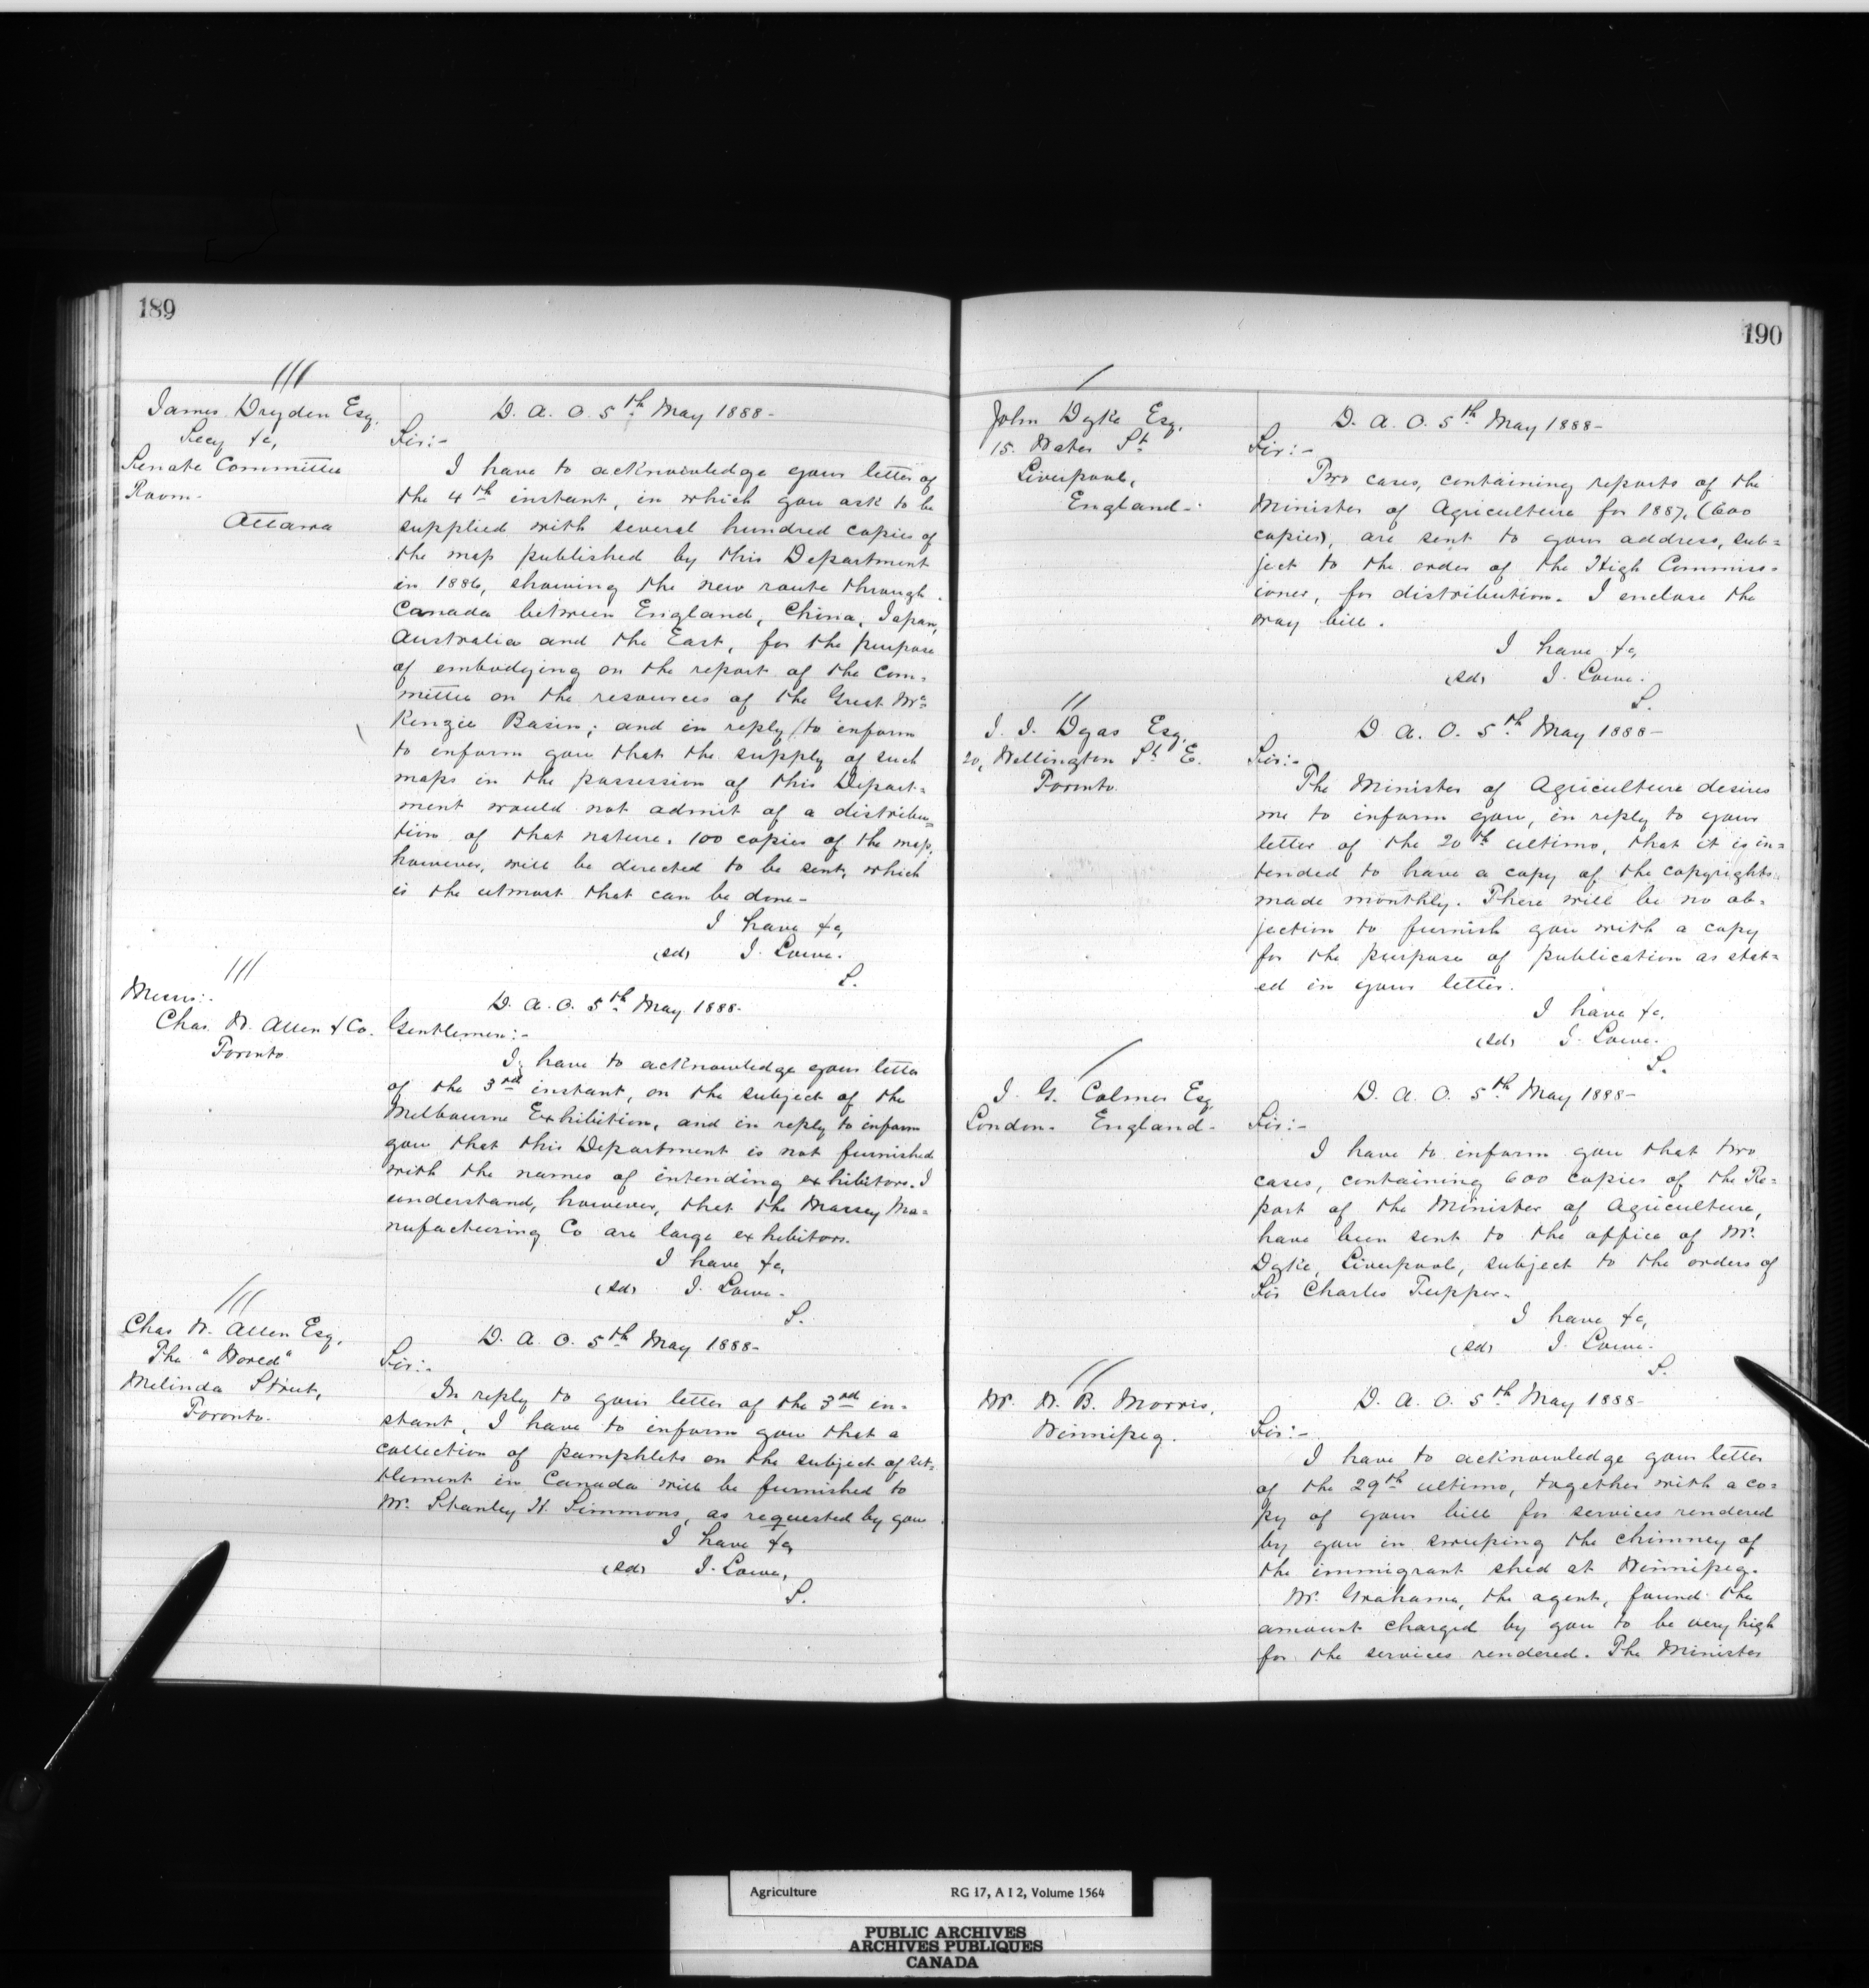 189
James Dryden Esq.
Secy &c,
Senate Committee
Room-
Ottawa
D. A. O. 5th May 1888-
Sir:-
I have to acknowledge your letter of
the 4th instant, in which you ask to be
supplied with several hundred copies of
the map published by this Department
in 1886, showing the new route through
Canada between England, China, Japan,
Australia and the East, for the purpose
of embodying on the report of the Com=
mittee on the resources of the Great Mc=
Kenzie Basin; and in reply to inform
to inform you that the supply of such
maps in the possession of this Depart=
ment would not admit of a distribu=
tion of that nature. 100 copies of the map,
however, will be directed to be sent, which
is the utmost that can be done-
I have &c,
(sd) J. Lowe.
S.
Messrs:-
Chas. W. Allen & Co.
Toronto
D. A. O. 5th May 1888-
Gentlemen:-
I have to acknowledge your letter
of the 3rd instant, on the subject of the
Melbourne Exhibition, and in reply to inform
you that this Department is not furnished
with the names of intending exhibitors. I
understand, however, that the Massey Ma=
nufacturing Co are large exhibitors.
I have &c,
(sd) J. Lowe.
S.
Chas W. Allen Esq.
The "World"
Melinda Street,
Toronto.
D. A. O. 5th May 1888-
Sir:-
In reply to your letter of the 3rd in=
stant, I have to inform you that a
collection of pamphlets on the subject of set=
tlement in Canada will be furnished to
Mr. Stanley H. Simmons, as requested by you
I have &c,
(sd) J. Lowe,
S.
190
John Dyke Esq.
15. Water St
Liverpool,
England-
D. A. O. 5th May 1888-
Sir:-
Two cases, containing reports of the
Minister of Agriculture for 1887, (600
copies), are sent to your address, sub=
ject to the order of the High Commiss=
ioner, for distribution. I enclose the
way bill.
I have &c,
(sd) J. Lowe.
S.
J. J. Dyas Esq.
20, Wellington St E.
Toronto.
D. A. O. 5th May 1888-
Sir:-
The Minister of Agriculture desires
me to inform you, in reply to your
letter of the 20th ultimo, that it is in=
tended to have a copy of the copyrights
made monthly. There will be no ob=
jection to furnish you with a copy
for the purpose of publication as stat=
ed in your letter.
I have &c,
(sd) J. Lowe.
S.
J. G. Colmer Esq
London- England-
D. A. O. 5th May 1888-
Sir:-
I have to inform you that two
cases, containing 600 copies of the Re=
port of the Minister of Agriculture,
have been sent to the office of Mr.
Dyke, Liverpool, subject to the orders of
Sir Charles Tupper.
I have &c,
(sd) J. Lowe.
S.
Mr. W. B. Morris,
Winnipeg.
D. A. O. 5th May 1888-
Sir:-
I have to acknowledge your letter
of the 29th ultimo, together with a co=
py of your bill for services rendered
by you in sweeping the chimney of
the immigrant shed at Winnipeg.
Mr. Grahame, the agent, found the
amount charged by you to be very high
for the services rendered. The Minister
Agriculture RG 17, A I 2, Volume 1564
PUBLIC ARCHIVES
ARCHIVES PUBLIQUES
CANADA